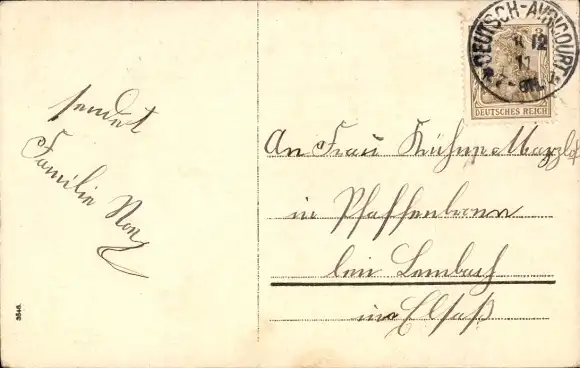 DEUTSCH-AVRICOURT
12
11
DEUTSCHES REICH
sendet
Familie
An Frau
in Pfaffenbronn
bei Lembach
im Elsaß
3546.